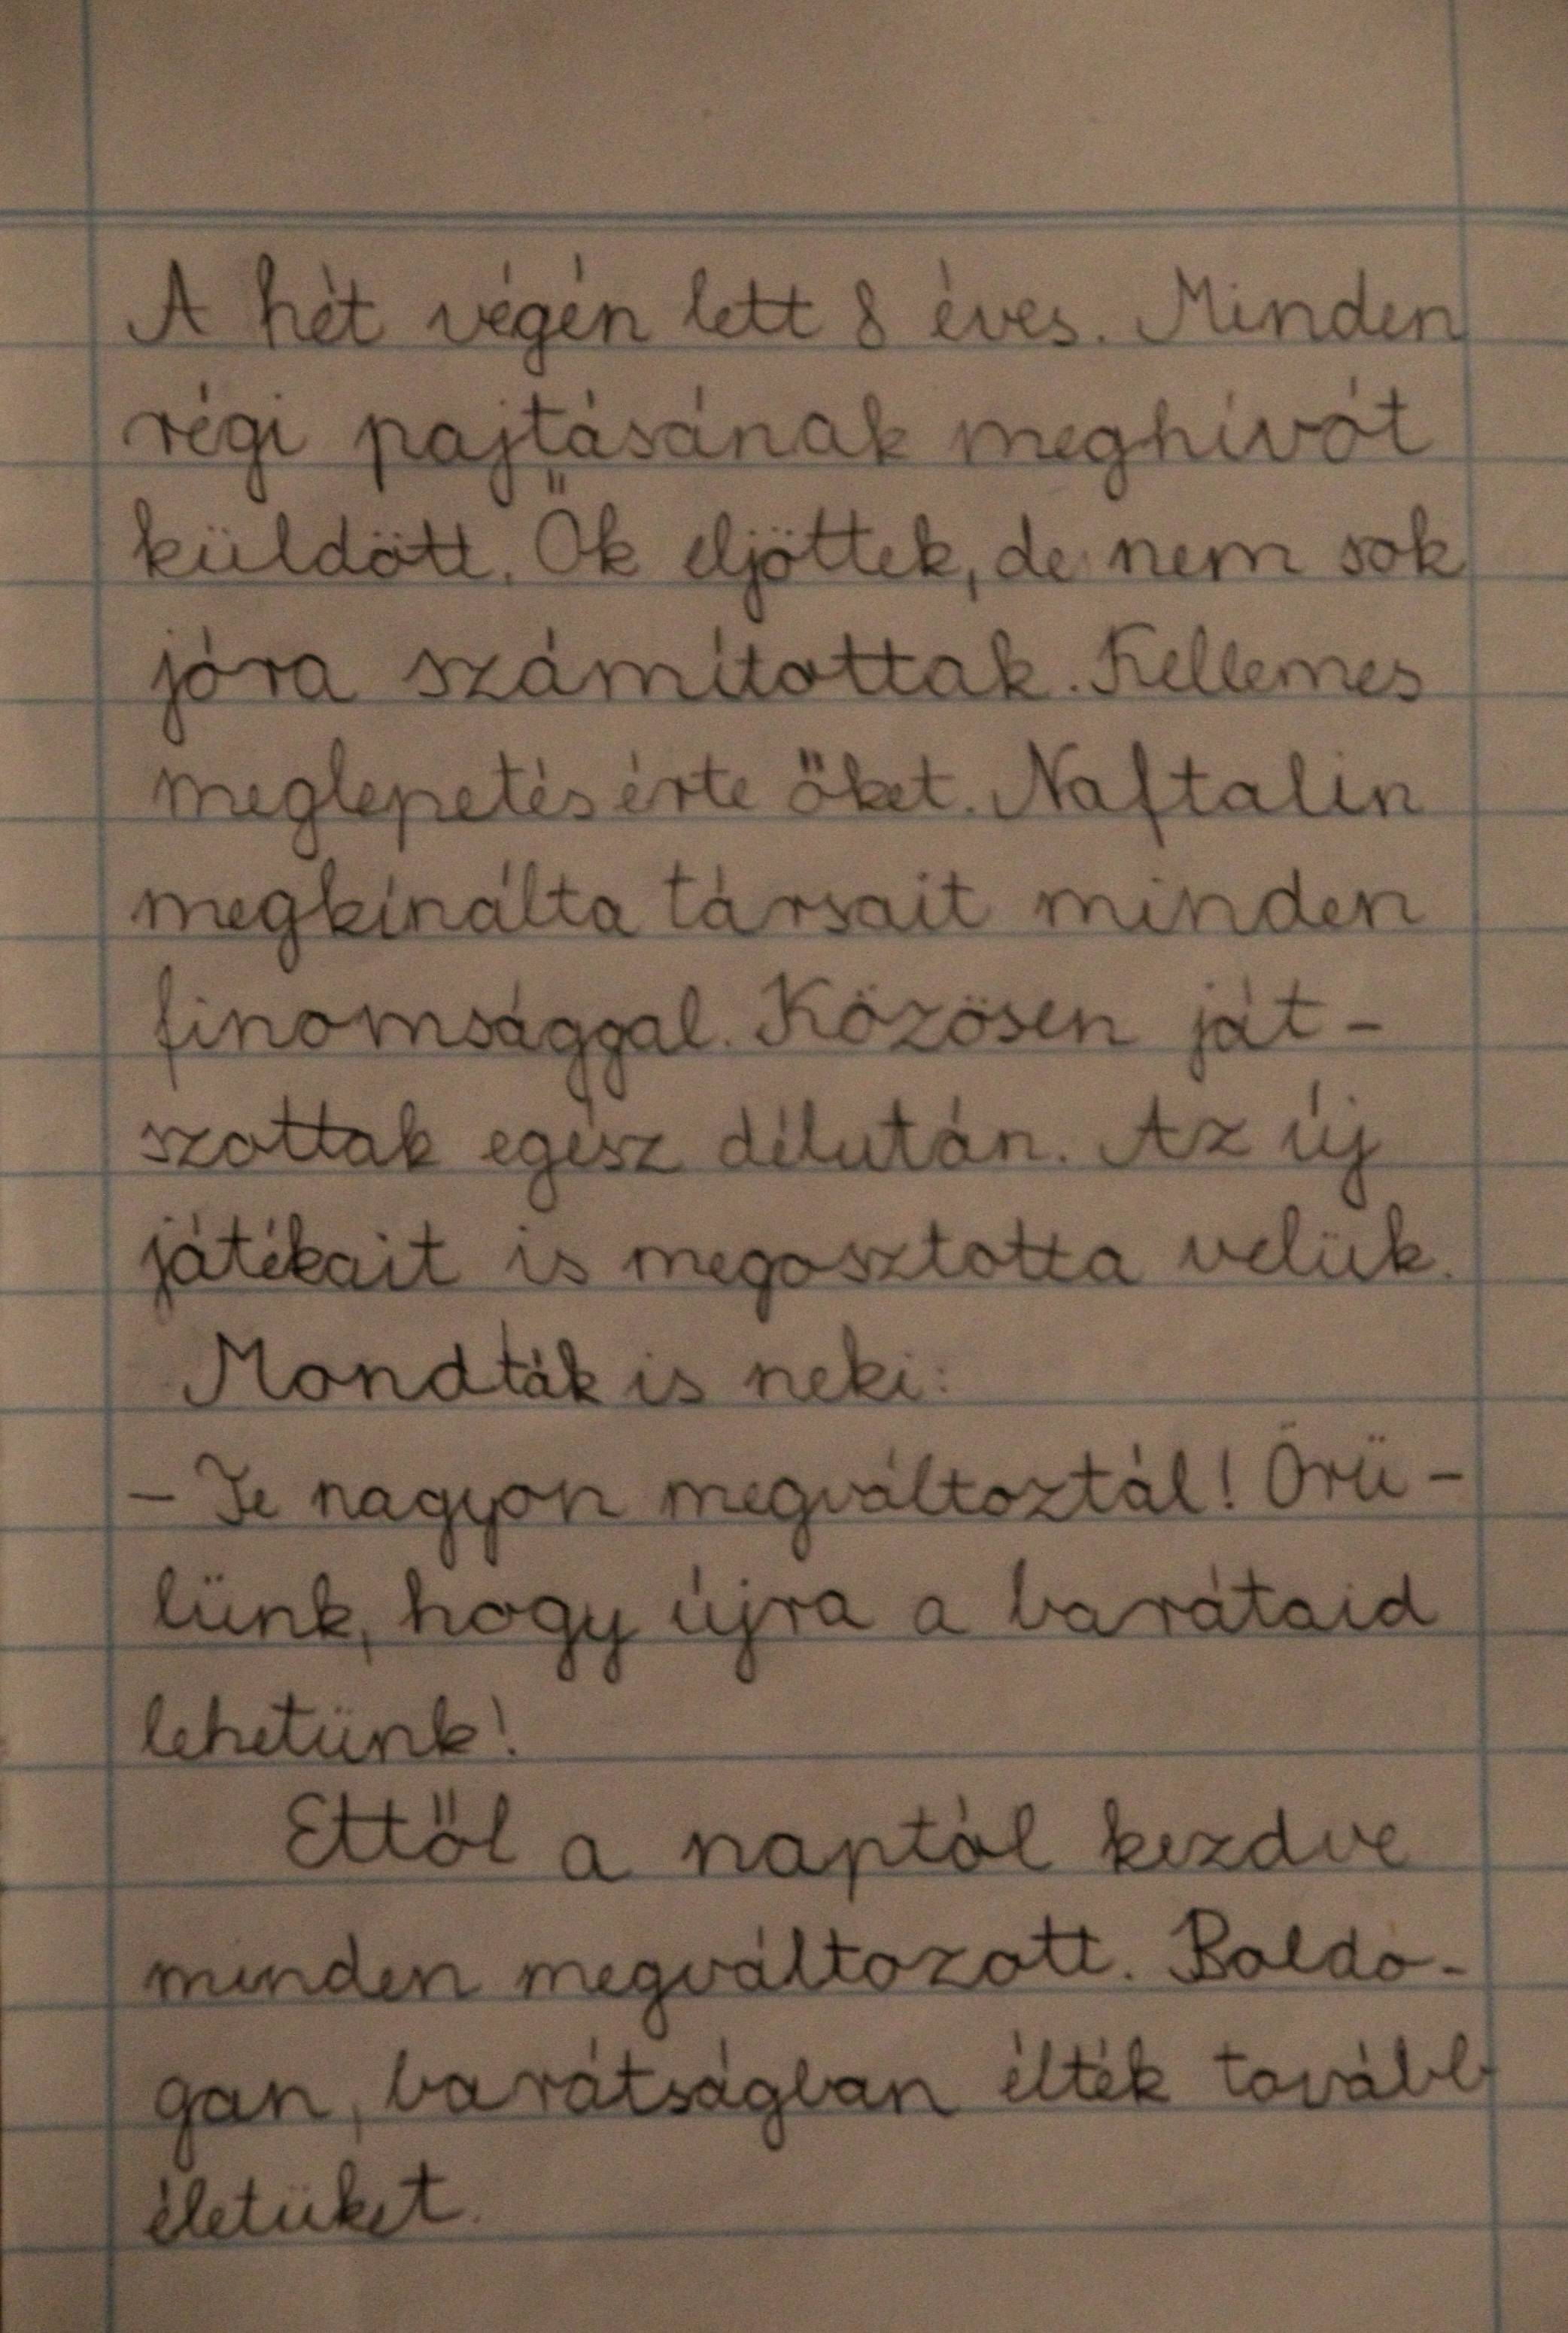 A hét végén lett 8 éves. Minden
régi pajtásának meghívót
küldött. Ők eljöttek, de nem sok
jóra számítottak. Kellemes
meglepetés érte őket. Naftalin
megkínálta társait minden
finomsággal. Közösen ját-
szottak egész délután. Az új
játékait is megosztotta velük.
Mondták is neki:
- Te nagyon megváltoztál! Örü-
lünk, hogy újra a barátaid
lehetünk!
Ettől a naptól kezdve
minden megváltozott. Boldo-
gan, barátságban élték tovább
életüket.